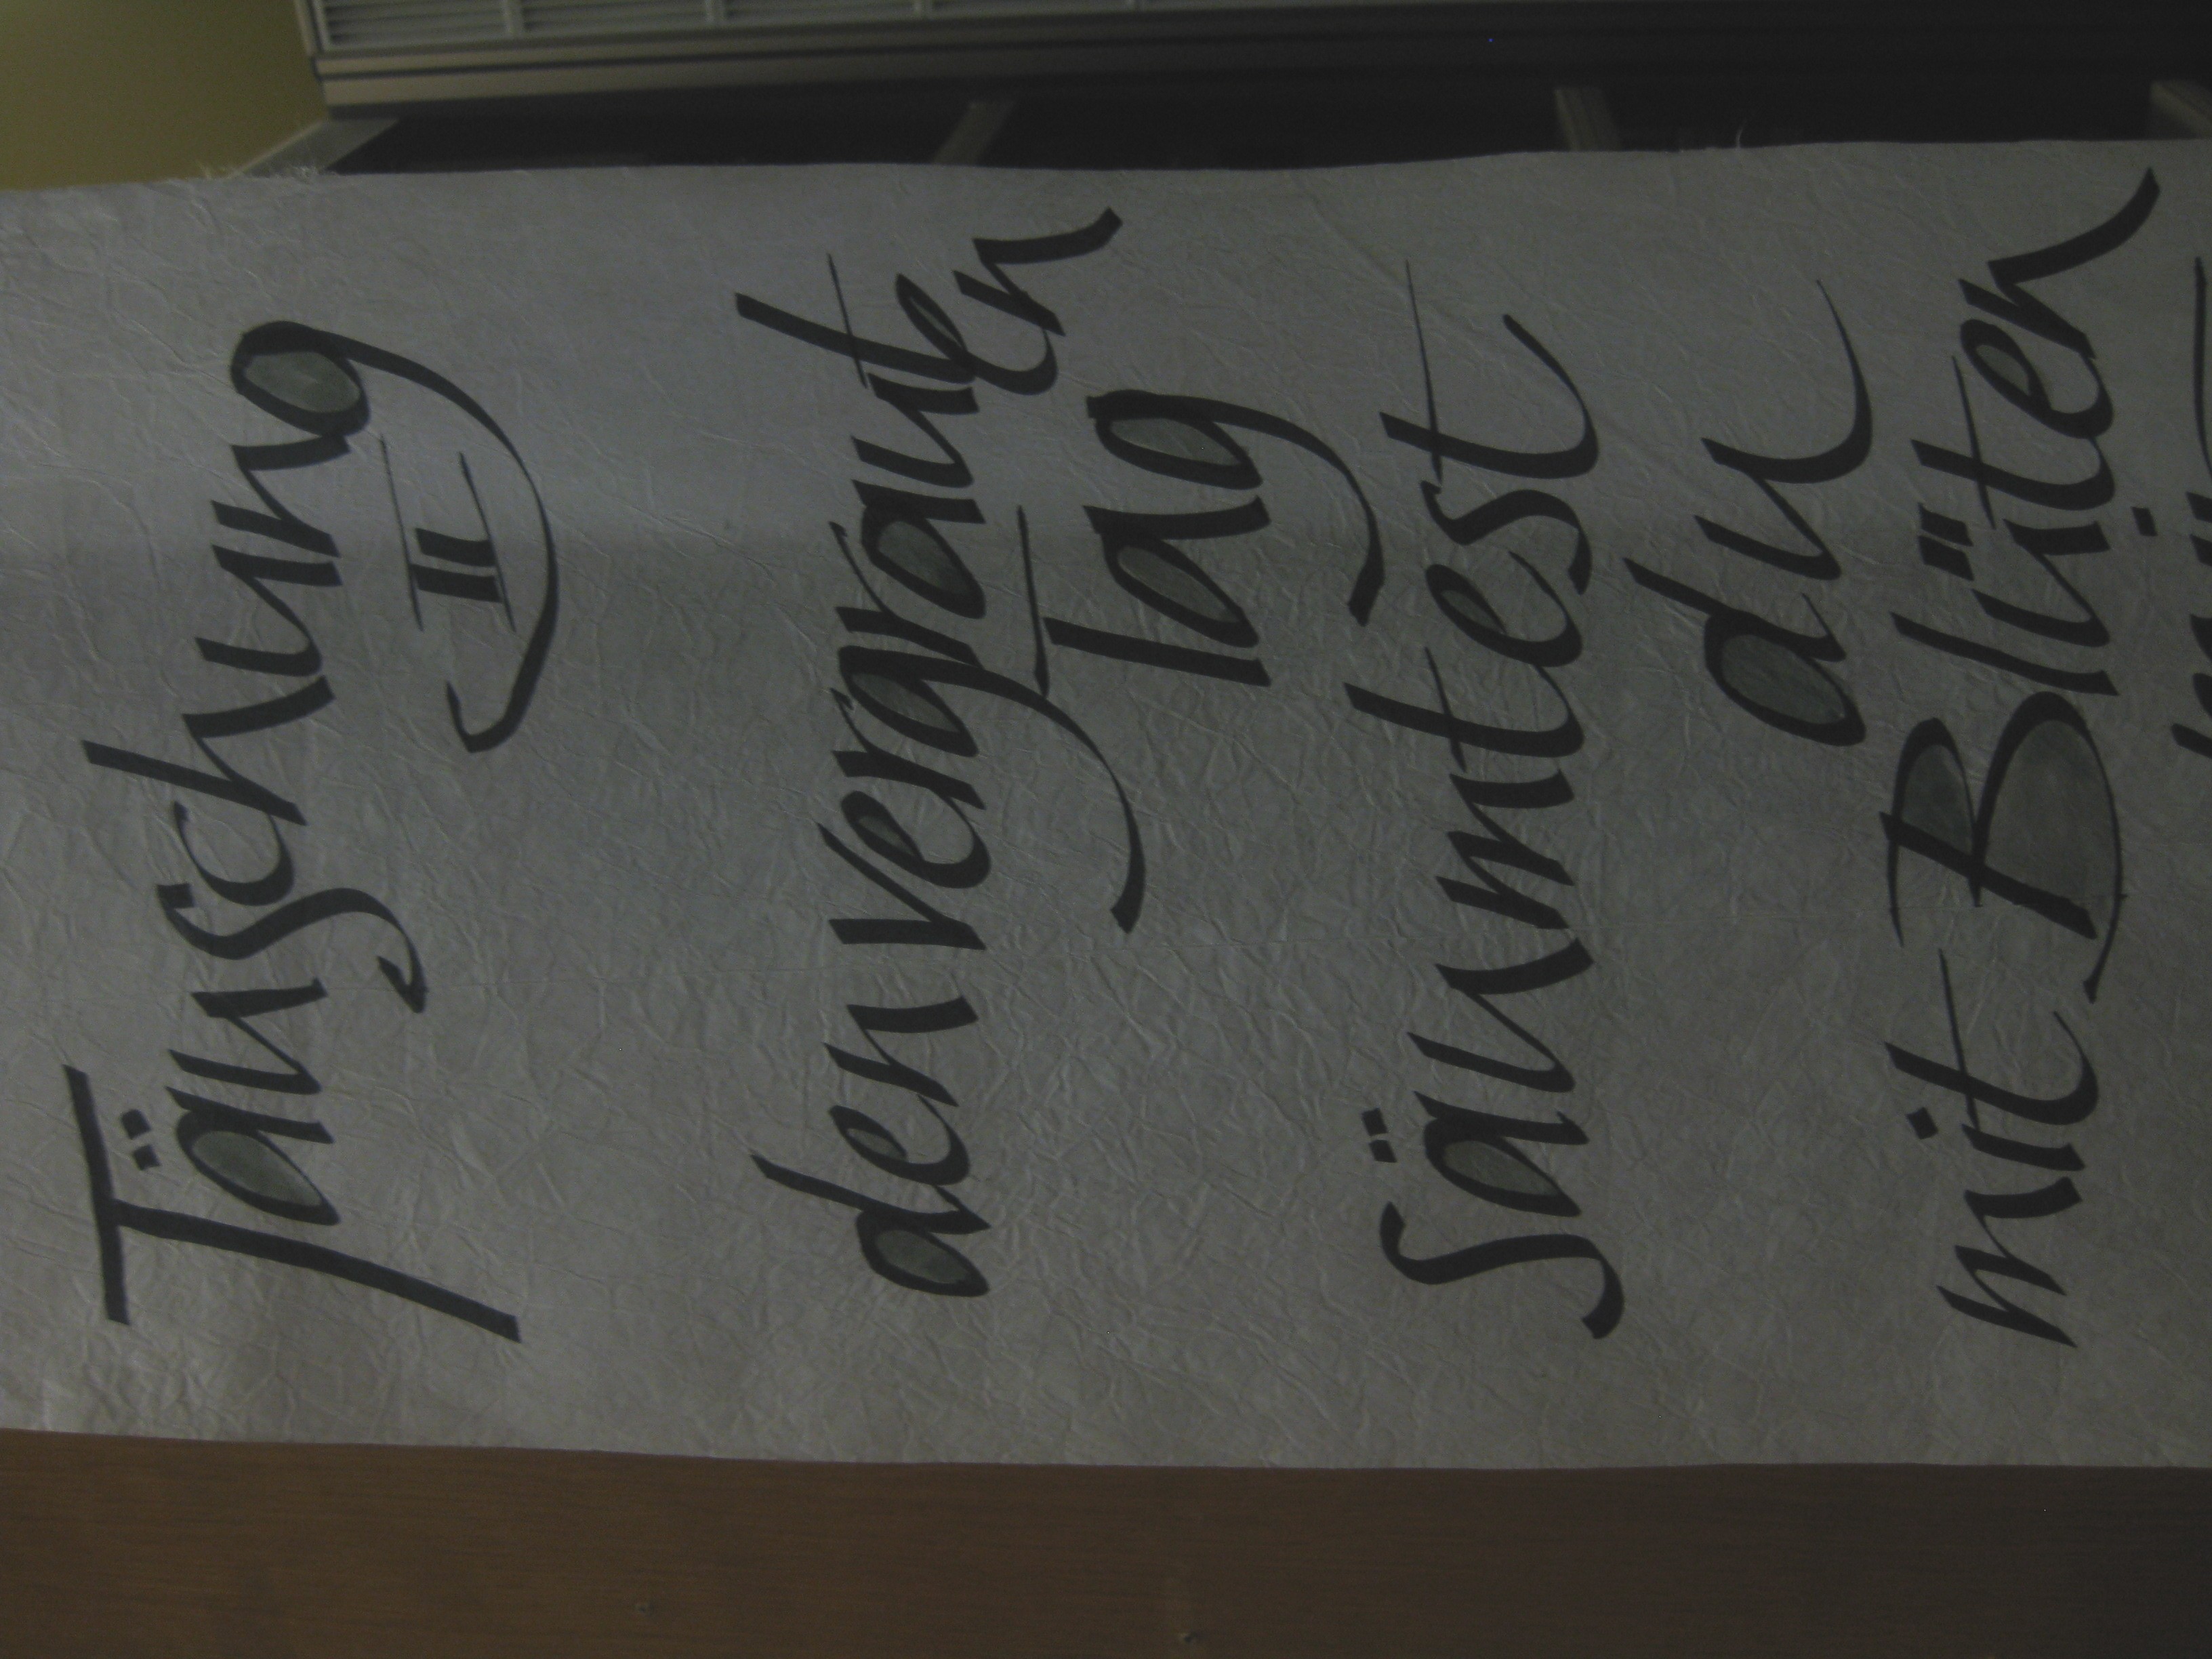 Täuschung
II
den vergrauten
Tag
säumtest
du
mit Blüten